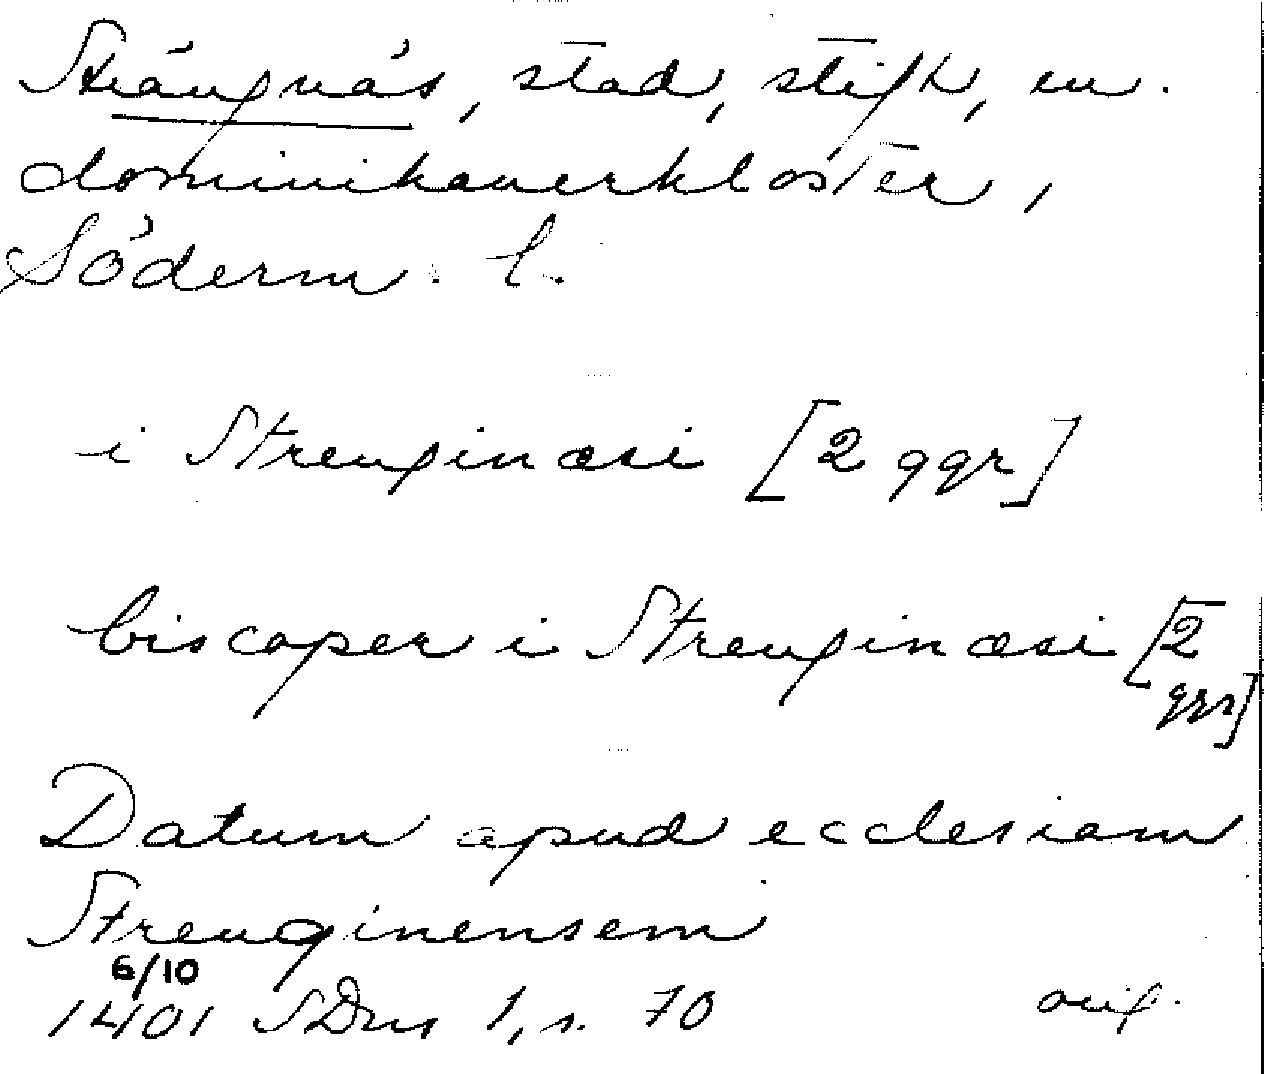 Strängnäs, stad, stift, en.
dominikanerkloster,
Söderm. l.
i Strenginæsi [2 ggr]
biscoper i Strenginæsi [2
ggr]
Datum apud ecclesiam
Strenginensem
6/10
1401 SDns 1, s. 70 orig.